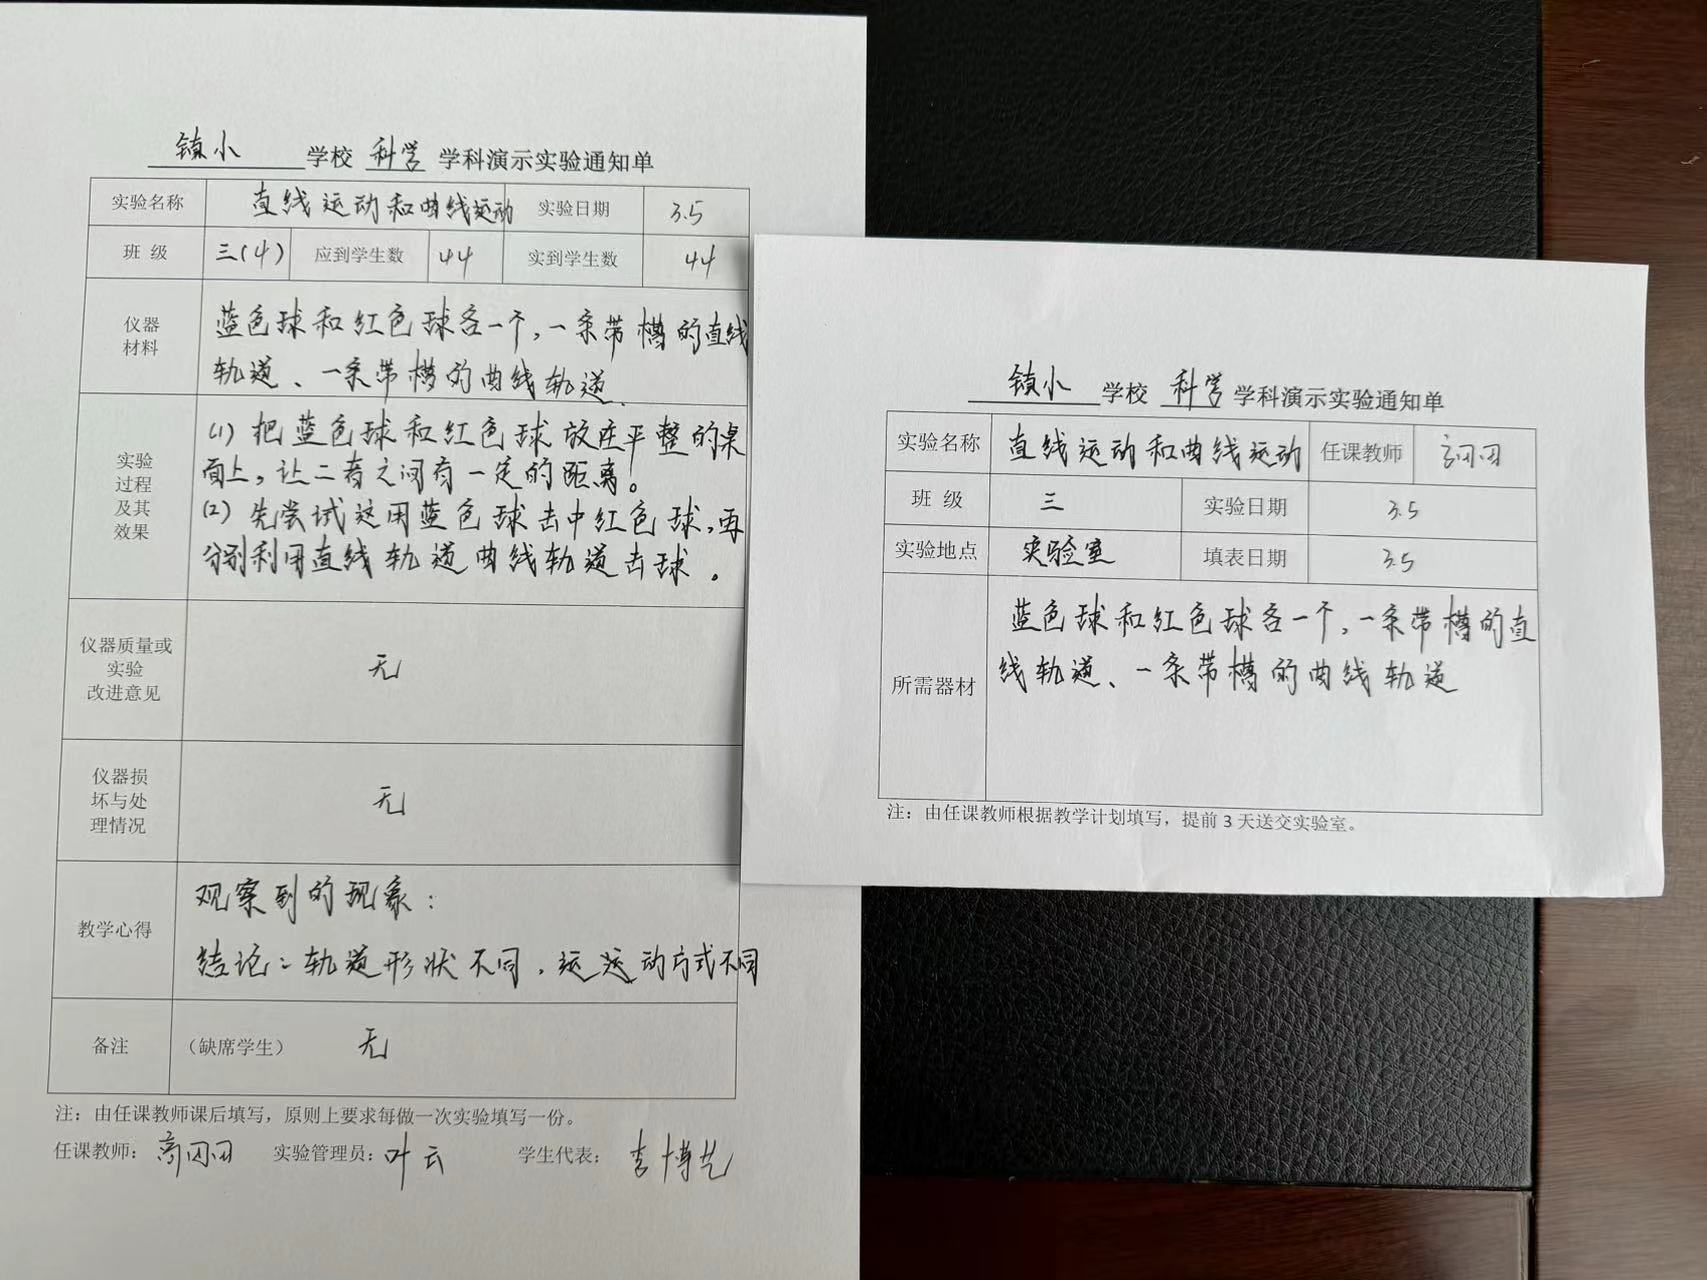 镇小 学校 科学 学科演示实验通知单
实验名称 直线运动和曲线运动 实验日期 3.5
班 级 三(4) 应到学生数 44 实到学生数 44
仪器
材料
蓝色球和红色球各一个,一条带槽的直线
轨道、一条带槽的曲线轨道.
实验
过程
及其
效果
(1) 把蓝色球和红色球放在平整的桌
面上,让二者之间有一定的距离。
(2) 先尝试这用蓝色球击中红色球,再
分别利用直线轨道曲线轨道击球。
仪器质量或
实验
改进意见
无
仪器损
坏与处
理情况
无
教学心得
观察到的现象:
结论:轨道形状不同,运运动方式不同
备注 (缺席学生) 无
注:由任课教师课后填写,原则上要求每做一次实验填写一份。
任课教师: 实验管理员:叶云 学生代表: 李博艺
镇小 学校 科学 学科演示实验通知单
实验名称 直线运动和曲线运动 任课教师
班 级 三 实验日期 3.5
实验地点 实验室 填表日期 3.5
所需器材
蓝色球和红色球各一个,一条带槽的直
线轨道、一条带槽的曲线轨道
注:由任课教师根据教学计划填写,提前3天送交实验室。